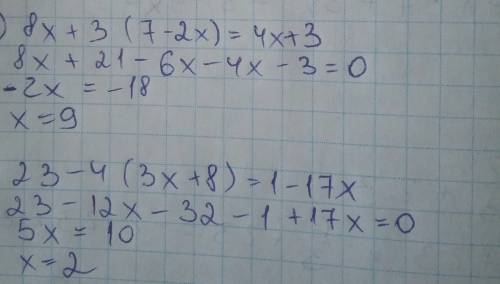 ) 8x + 3 (7-2x) = 4x+3
8x + 21 - 6x - 4x - 3 = 0
-2x = -18
x = 9
23 - 4 (3x+8) = 1 - 17x
23 - 12x - 32 - 1 + 17x = 0
5x = 10
x = 2